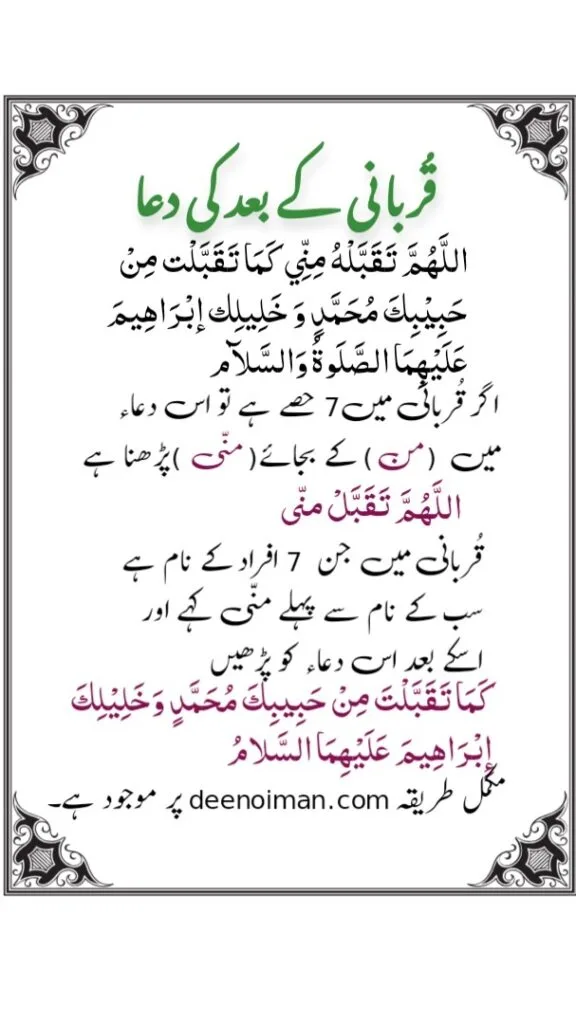 قُربانی کے بعد کی دعا
اللَّهُمَّ تَقَبَّلْهُ مِنِّي كَمَا تَقَبَّلْت مِنْ
حَبِيْبِكَ مُحَمَّدٍ وَ خَلِيلِك إبْرَاهِيمَ
عَلَيْهِمَا الصَّلَوةُ وَالسَّلَآم
اگر قُربانی میں 7 حصے ہے تو اس دعاء
میں (من) کے بجائے (منّی )پڑھنا ہے
اللَّهُمَّ تَقَبَّلْ منّی
قُربانی میں جن 7 افراد کے نام ہے
سب کے نام سے پہلے منّی کہے اور
اسکے بعد اس دعاء کو پڑھیں
كَمَا تَقَبَّلْتَ مِنْ حَبِيبِكَ مُحَمَّدٍ وَخَلِيْلِكَ
إِبْرَاهِيمَ عَلَيْهِمَا السَّلامُ
مکمل طریقہ deenoiman.com پر موجود ہے۔